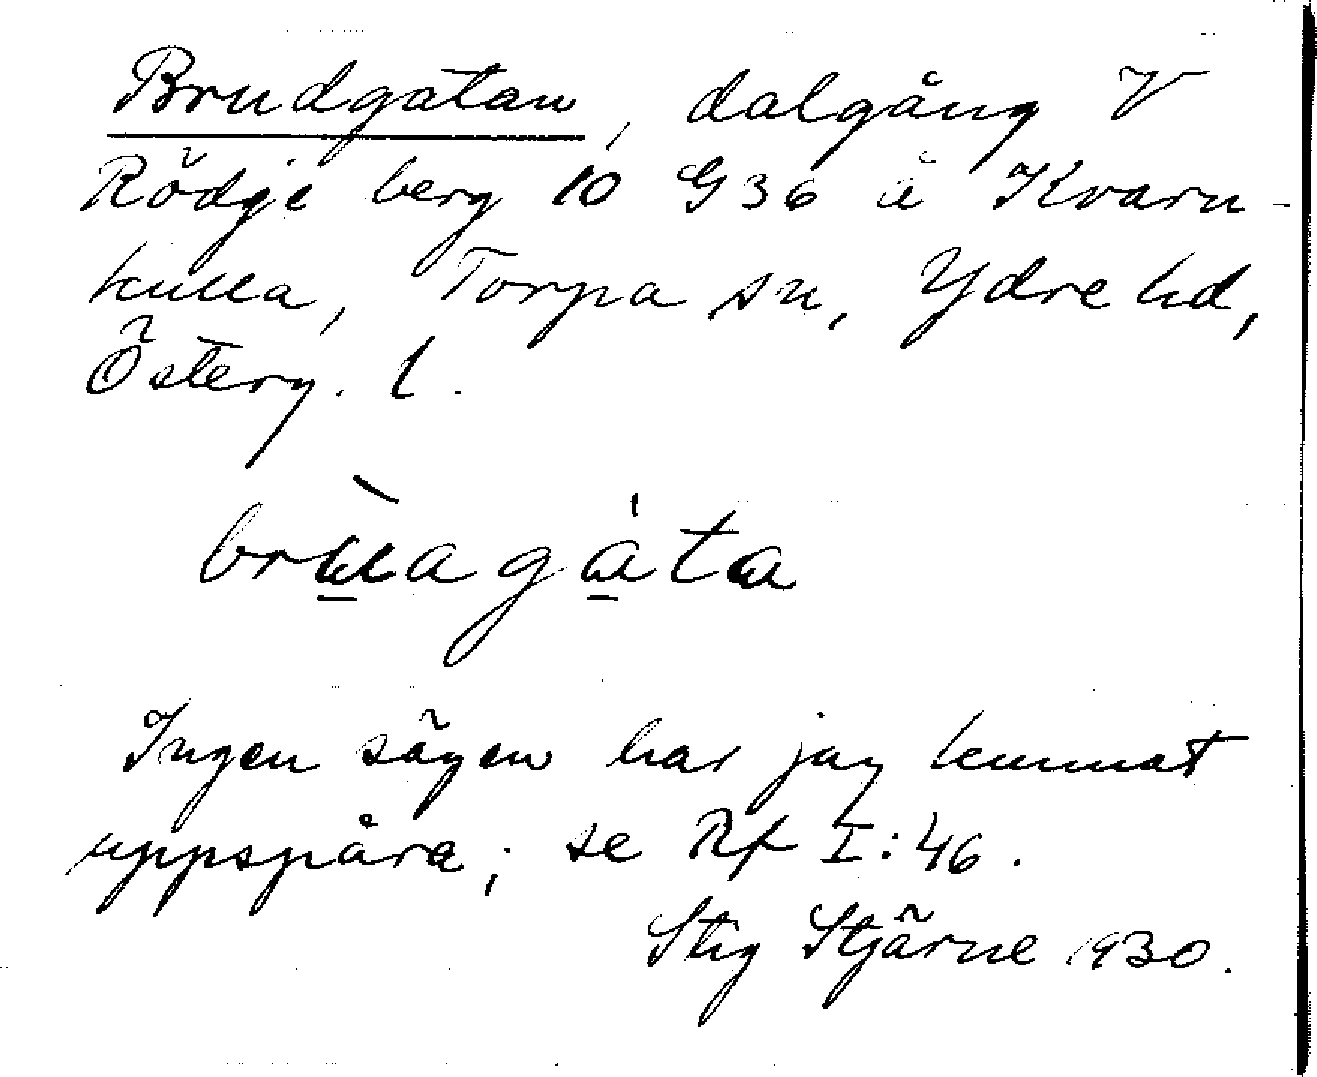 Brudgatan, dalgång V
Rödje berg 10 G36 å Kvarn-
kulla, Torpa sn, Ydre hd,
Österg. l.
brùagáta
Ingen sägen har jag kunnat
uppspåra; se Rf I:46.
Stig Stjärne 1930.